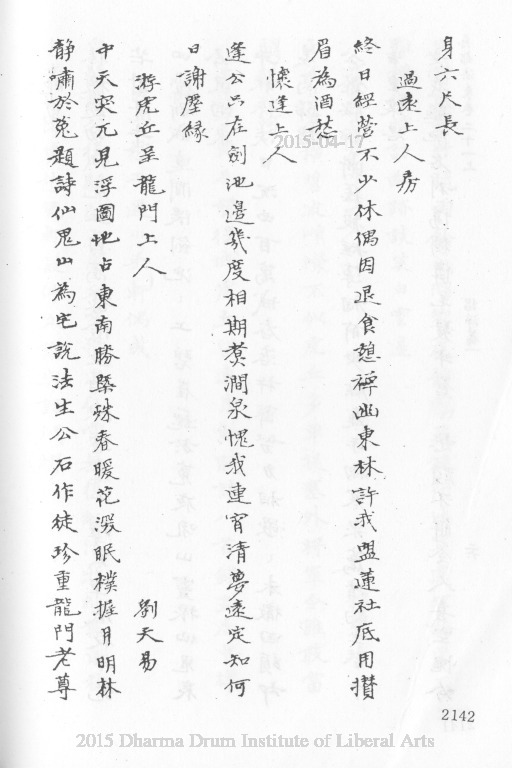 身六尺長
過遠上人房
終日經營不少休偶因退食憩禪幽東林許我盟蓮社底用攢
眉為酒愁
懷逢上人
逢公只在劍池邊幾度相期煑澗泉愧我連宵清夢遠定知何
日謝塵緣
游虎丘呈龍門上人
劉天易
中天突兀見浮圖地占東南勝槩殊春暖花深眠樸握月明林
静嘯於菟題詩仙鬼山為宅說法生公石作徒珍重龍門老尊
2142
2015-04-17
2015 Dharma Drum Institute of Liberal Arts